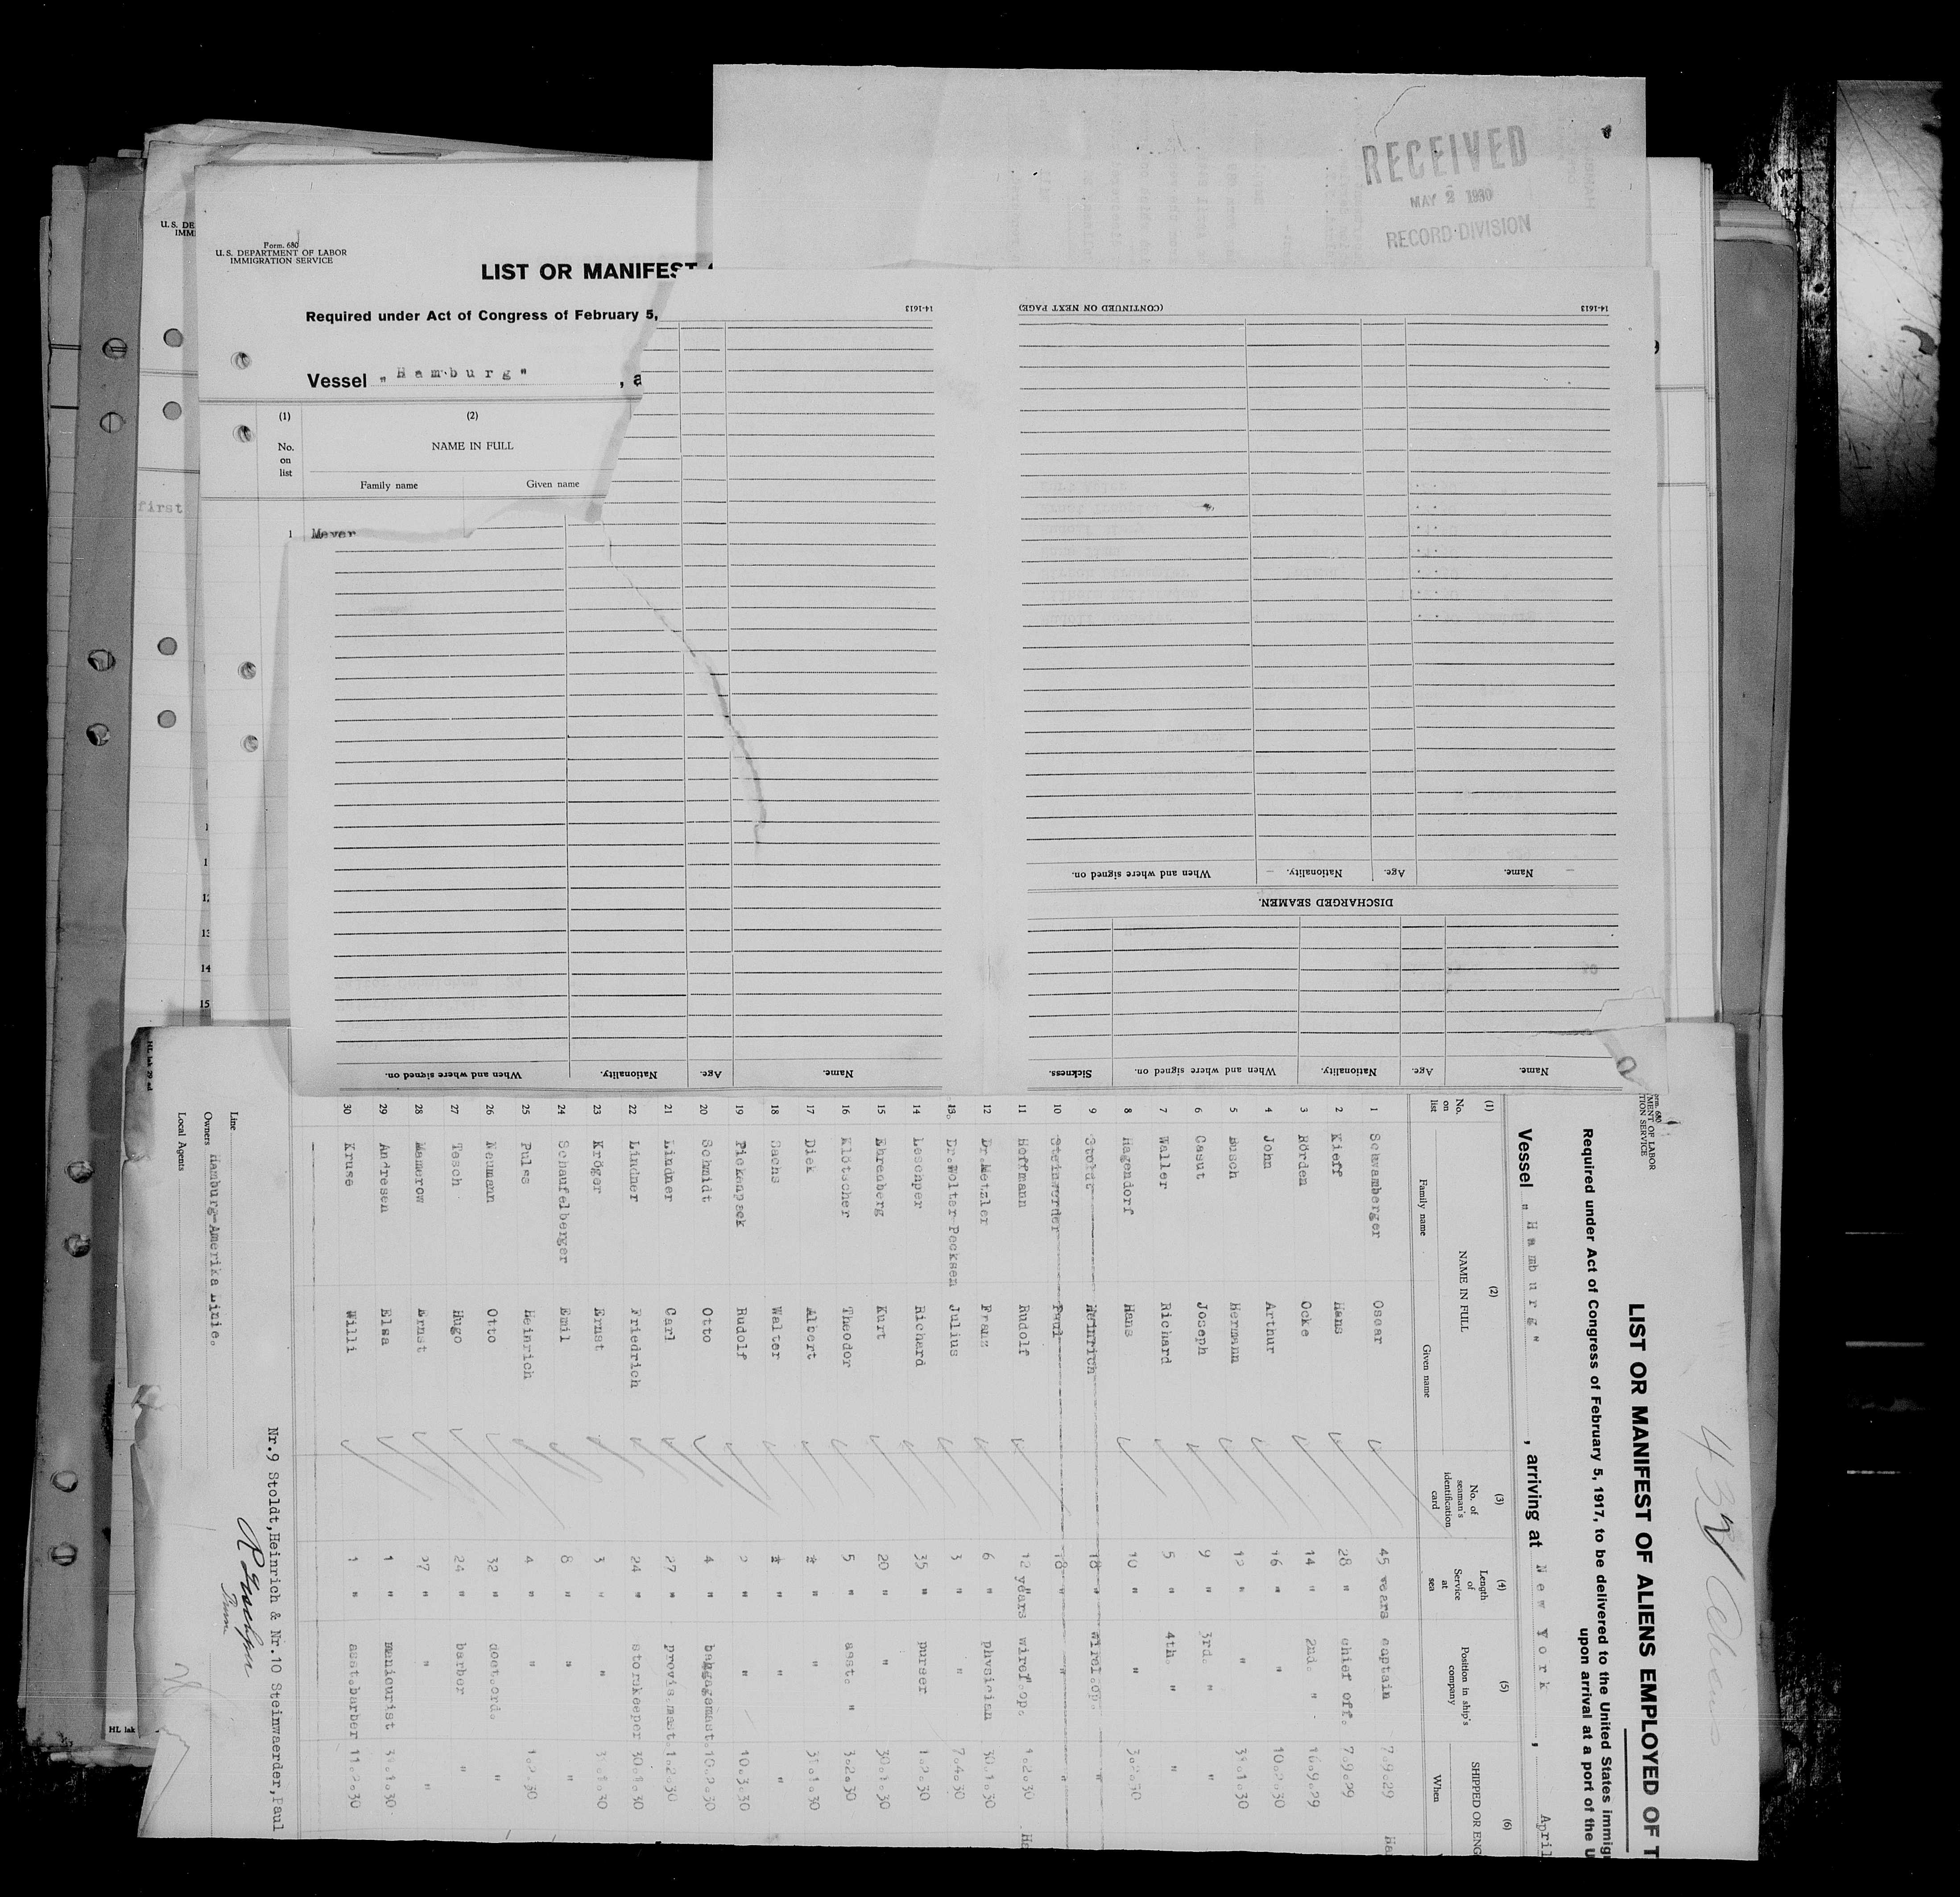 RECEIVED
MAY 2 1930
RECORD DIVISION
U. S. DE
IMMI
first
Form 680
U. S. DEPARTMENT OF LABOR
IMMIGRATION SERVICE
LIST OR MANIFEST
Required under Act of Congress of February 5,
Vessel "Hamburg" , a
(1) (2)
No. on list NAME IN FULL
Family name Given name
1 Meyer
14-1613
(CONTINUED ON NEXT PAGE) 14-1613
Name. Age. Nationality. When and where signed on.
DISCHARGED SEAMEN.
Name. Age. Nationality. When and where signed on. Sickness.
Name. Age. Nationality. When and where signed on.
13
14
15
HL lak
433 Aliens
rm 680
MENT OF LABOR
TION SERVICE
LIST OR MANIFEST OF ALIENS EMPLOYED OF T
Required under Act of Congress of February 5, 1917, to be delivered to the United States immigr
upon arrival at a port of the U
Vessel "Hamburg" , arriving at New York , April
(1) (2) (3) (4) (5) (6)
No. on list NAME IN FULL No. of seaman's identification card Length of Service at sea Position in ship's company SHIPPED OR ENG
Family name Given name When
1 Schwamberger Oscar 45 years captain 7.9.29 Ha
2 Kieff Hans 28 " chief off. 7.9.29
3 Hörden Ocke 14 " 2nd. " 16.9.29
4 John Arthur 16 " " 10.2.30
5 Busch Hermann 12 " " 31.1.30
6 Casut Joseph 9 " 3rd. " "
7 Waller Richard 5 " 4th. " "
8 Hagendorf Hans 10 " " 3.2.30
9 Stoldt Heinrich 18 " wirel.op. "
10 Steinwerder Paul 18 " " "
11 Hoffmann Rudolf 12 years wirel.op. 1.2.30 Ha
12 Dr.Metzler Franz 6 " physician 30.1.30
13. Dr.Wolter-Pecksen Julius 3 " " 7.4.30
14 Lesenper Richard 35 " purser 1.2.30
15 Ehrenberg Kurt 20 " " 30.1.30
16 Klötscher Theodor 5 " asst. " 3.2.30
17 Diek Albert ½ " " 31.1.30
18 Sachs Walter ½ " " "
19 Pickenpack Rudolf 2 " " 10.3.30
20 Schmidt Otto 4 " baggagemast. 10.2.30
21 Lindner Carl 27 " provis.mast. 1.2.30
22 Lindner Friedrich 24 " storekeeper 30.1.30
23 Kröger Ernst 3 " " 31.1.30
24 Schaufelberger Emil 8 " " "
25 Puls Heinrich 4 " " 1.2.30
26 Neumann Otto 32 " doct.ord. "
27 Tesch Hugo 24 " barber "
28 Mamerow Ernst 27 " " "
29 Andresen Elsa 1 " manicurist 31.1.30
30 Kruse Willi 1 " asst.barber 11.2.30
Nr.9 Stoldt,Heinrich & Nr.10 Steinwaerder,Paul
Line
Owners Hamburg-Amerika Linie.
Local Agents